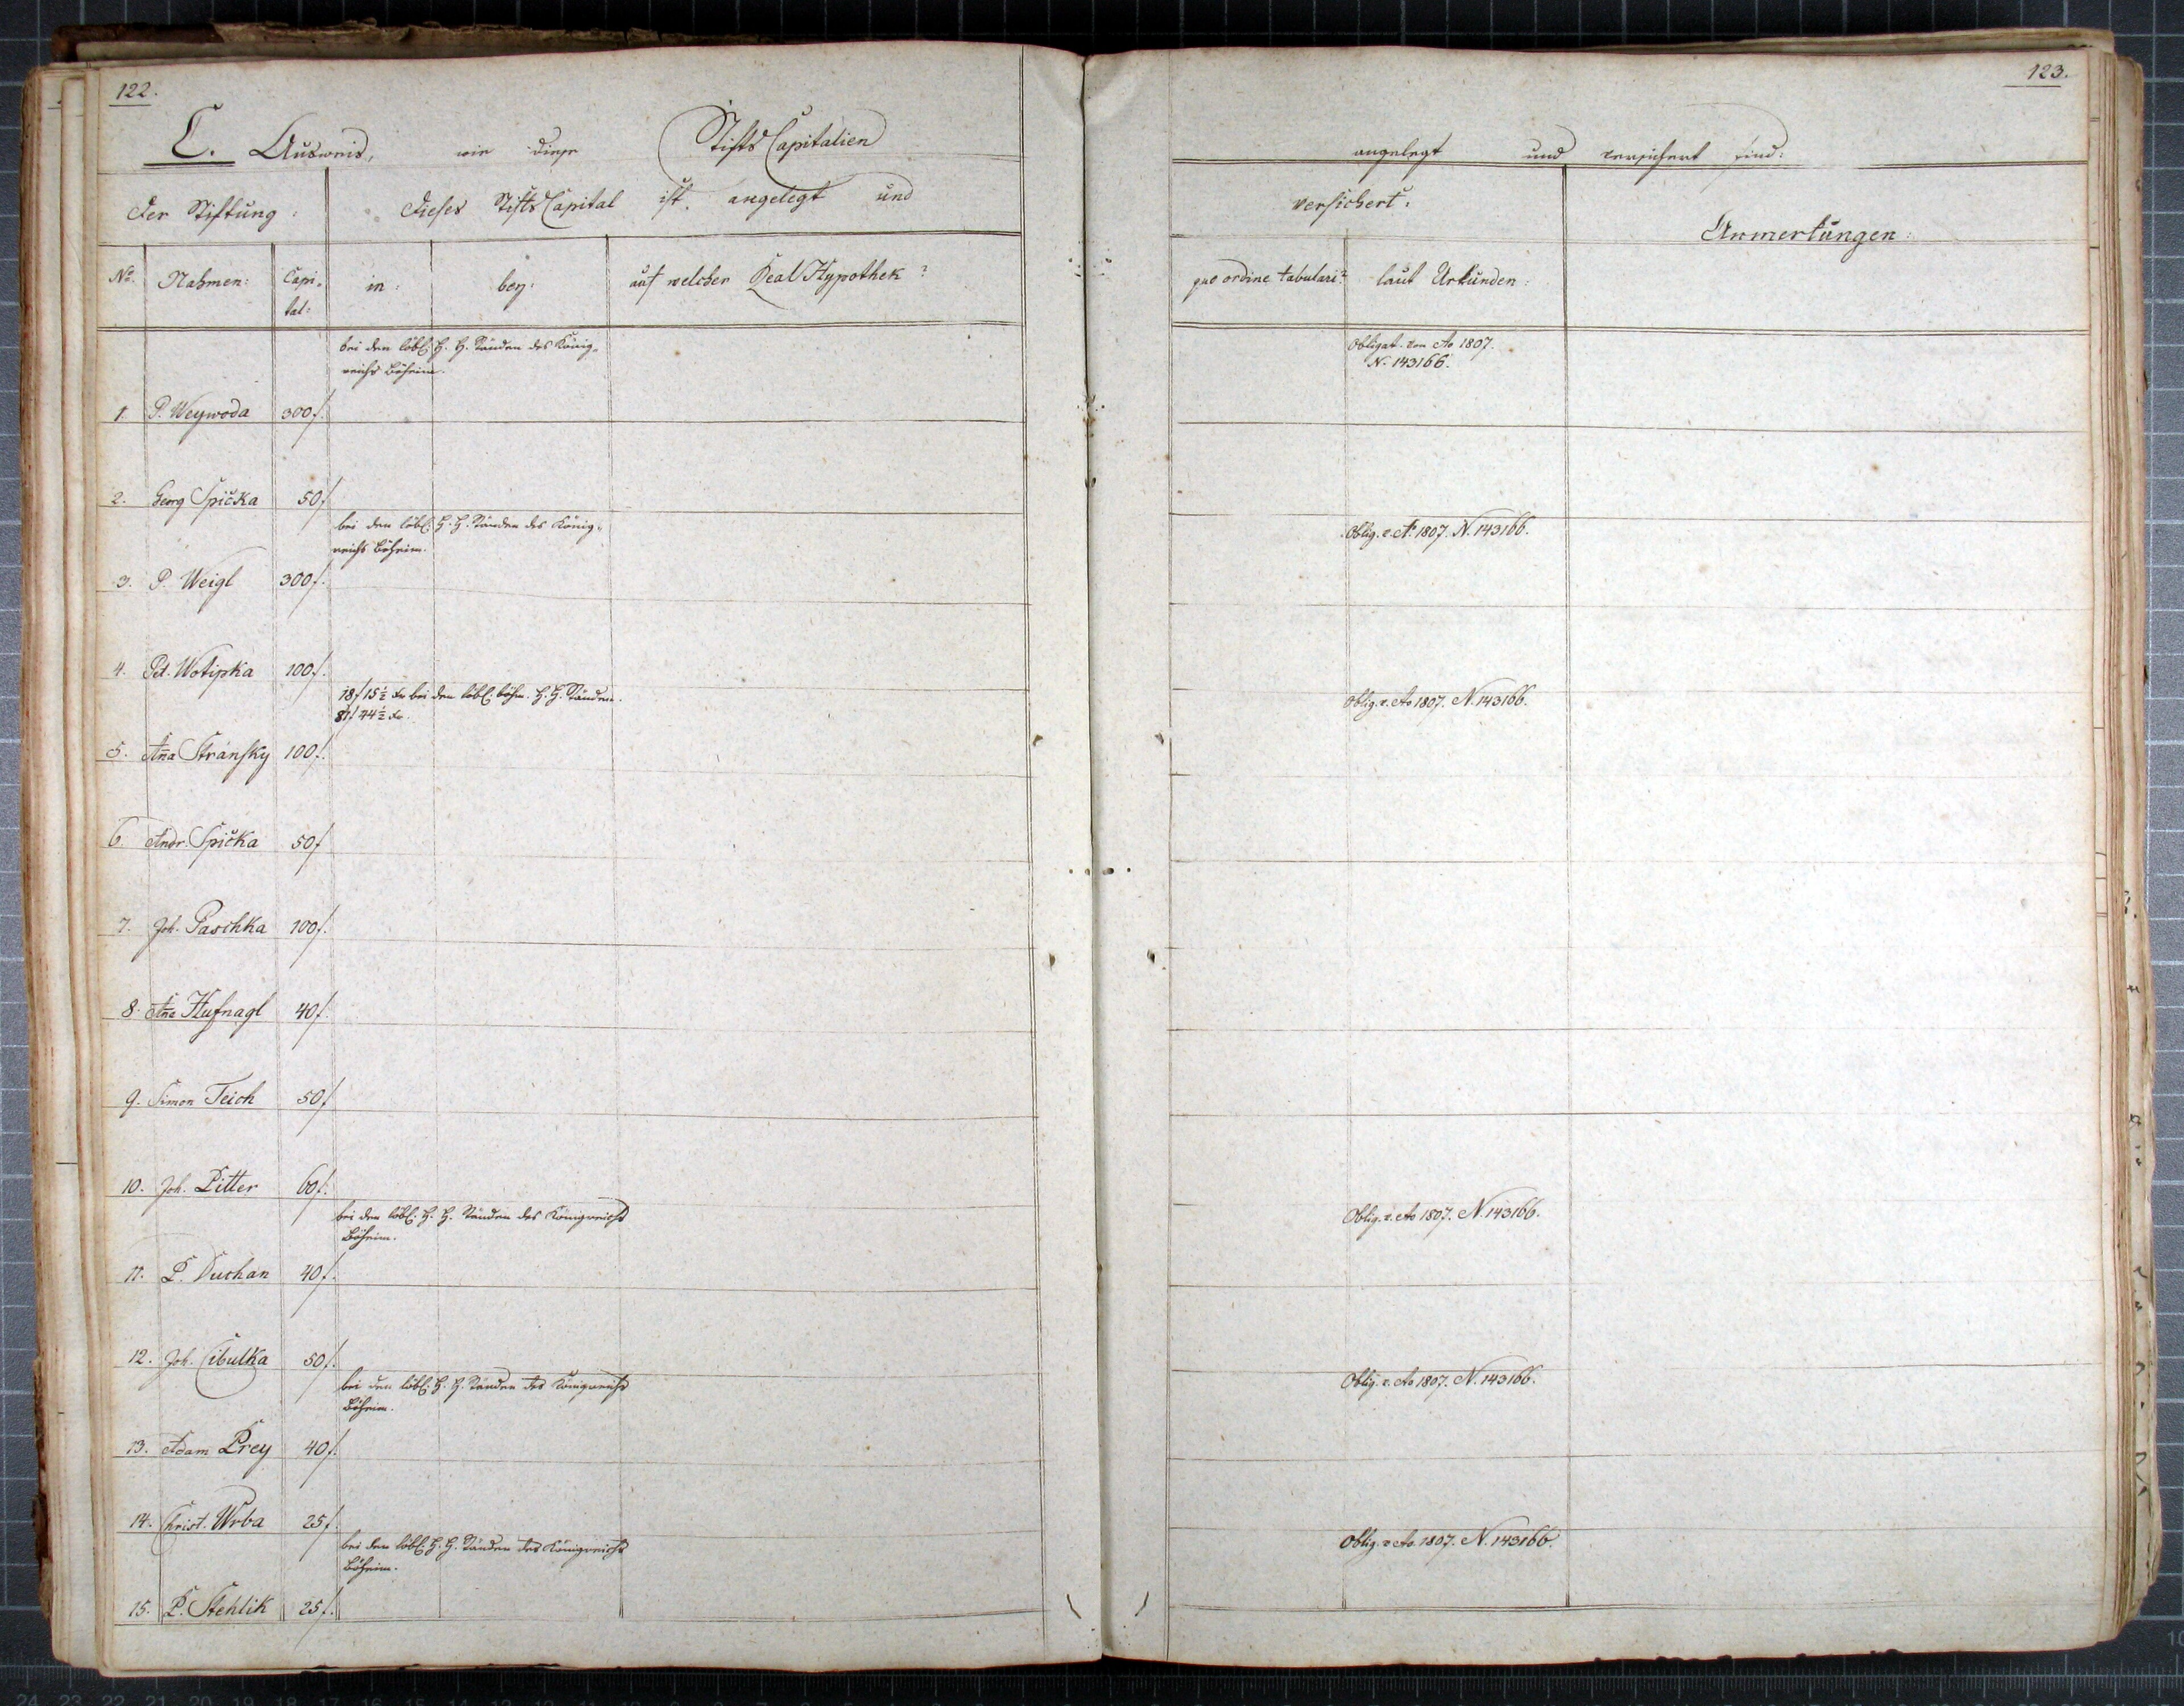 122.
C. Ausweis, wie diese Stifts Capitalien
der Stiftung: dieses Stifts Capital ist angelegt und
No. Nahmen: Capi-
tal: in: bey: auf welcher Real Hypothek?
bei den löbl. H. H. Ständen des König-
reichs Böheim.
1. P. Weywoda 300 f.
2. Georg Spička 50 f
bei den löbl. H. H. Ständen des König-
reichs Böheim.
3. P. Weigl 300 f.
4. Pet. Wotipka 100 f.
18 f 15 ½ xr bei den löbl. böhm. H. H. Ständen.
81 f 44 ½ xr.
5. Aña Stránsky 100 f.
6. Andr. Spička 50 f
7. Joh. Paschka 100 f.
8. Aña Hufnagl 40 f.
9. Simon Teich 50 f
10. Joh. Pitter 60 f.
bei den löbl. H. H. Ständen des Königreichs
Böheim.
11. P. Duchan 40 f.
12. Joh. Cibulka 50 f.
bei den löbl. H. H. Ständen des Königreichs
Böheim.
13. Adam Prey 40 f.
14. Christ. Wrba 25 f.
bei den löbl. H. H. Ständen des Königreichs
Böheim.
15. P. Stehlik 25 f.
123.
angelegt und versichert sind:
versichert: Anmerkungen:
quo ordine tabulari? laut Urkunden:
Obligat. von Ao 1807.
N. 143166.
Oblig. v. Ao 1807. N. 143166.
Oblig. v. Ao 1807. N. 143166.
Oblig. v. Ao 1807. N. 143166.
Oblig. v. Ao 1807. N. 143166.
Oblig. v Ao. 1807. N. 143166.